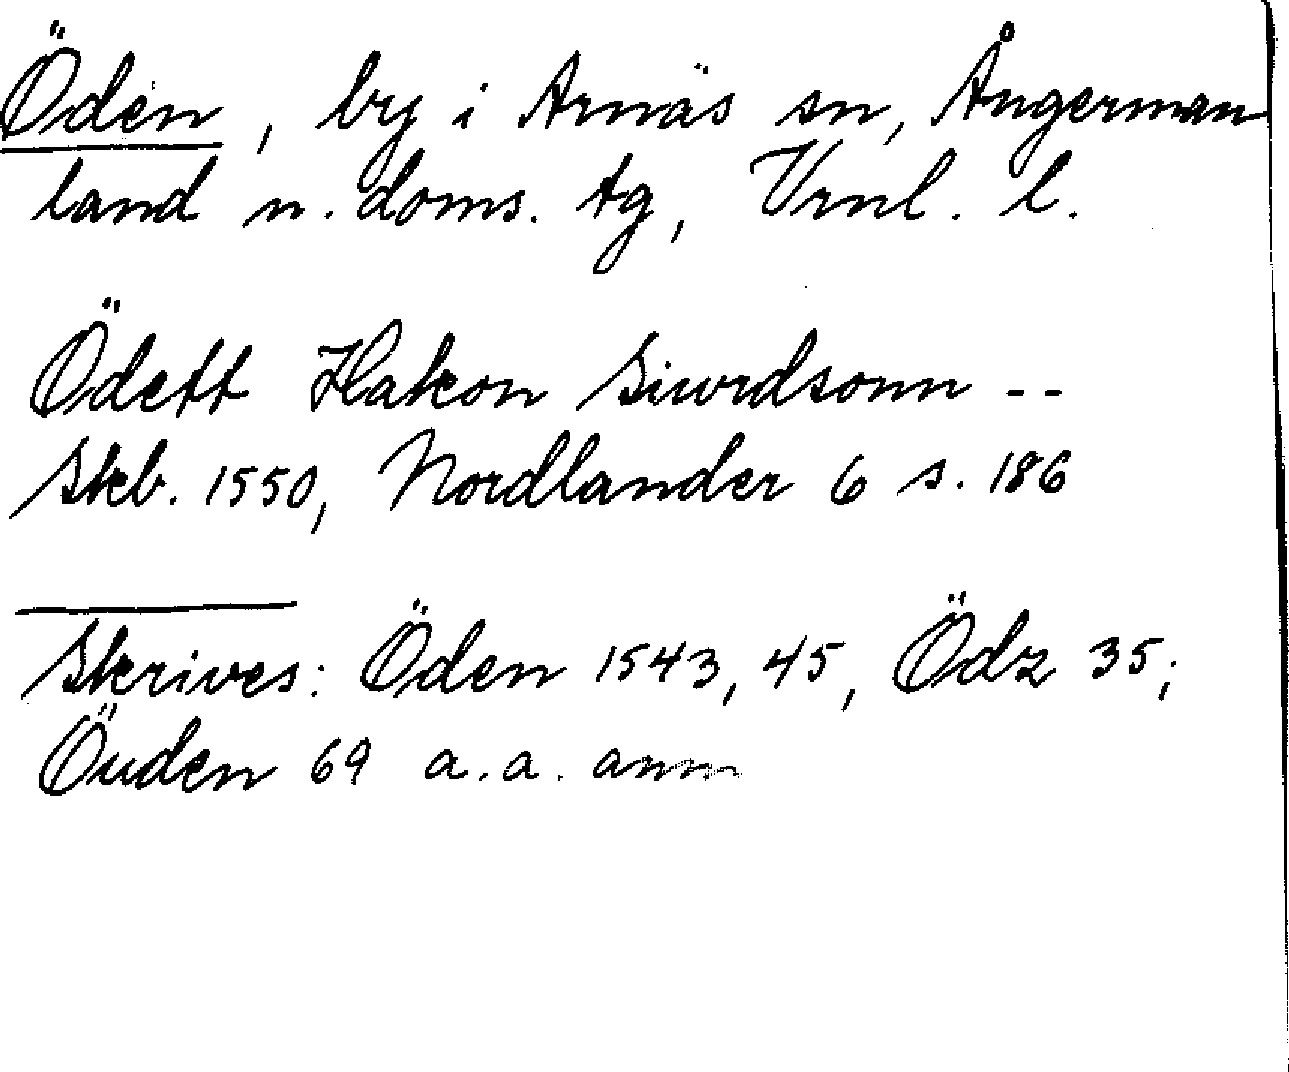 Öden, by i Arnäs sn, Ångerman
land n. doms. tg, Vrnl. l.
Ödett Hakon Siurdsonn --
Skb. 1550, Nordlander 6 s. 186
Skrives: Öden 1543, 45, Ödz 35;
Öuden 69 a.a. anm